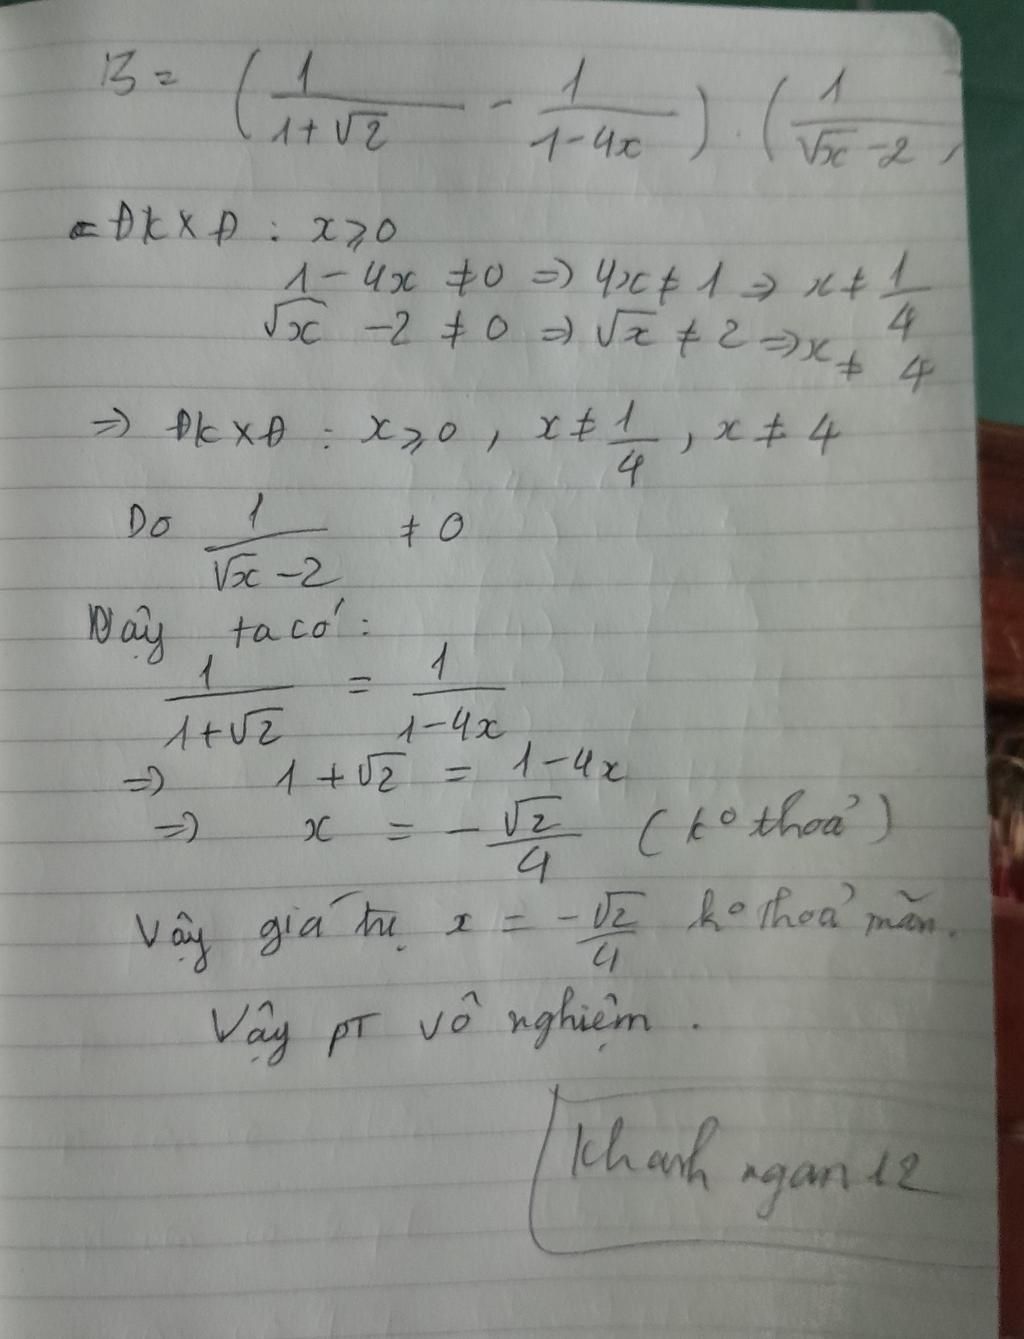 B = (1/(1+√2) - 1/(1-4x)) . (1/(√x-2)
ĐKXĐ : x ≥ 0
1-4x ≠ 0 => 4x ≠ 1 => x ≠ 1/4
√x -2 ≠ 0 => √x ≠ 2 => x ≠ 4
=> ĐKXĐ : x ≥ 0 , x ≠ 1/4 , x ≠ 4
Do 1/(√x-2) ≠ 0
Vậy ta có :
1/(1+√2) = 1/(1-4x)
=> 1+√2 = 1-4x
=> x = -√2/4 (kº thoả)
Vậy giá trị x = -√2/4 kº thoả mãn.
Vậy PT vô nghiệm .
Khanh ngan 12